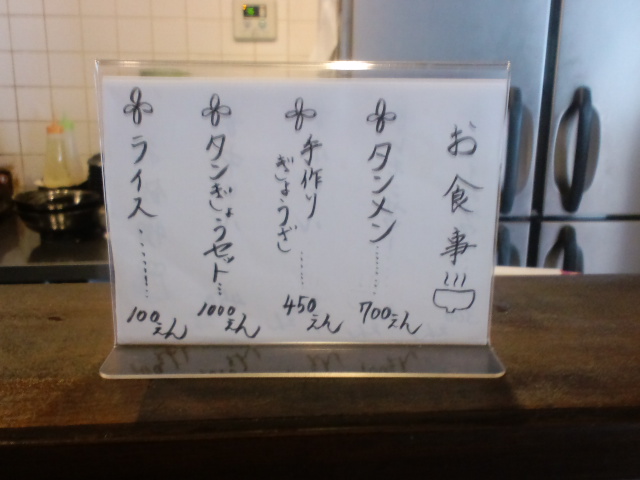 お食事
タンメン……
700えん
手作り
ぎょうざ……
450えん
タンぎょうセット…
1000えん
ライス……
100えん